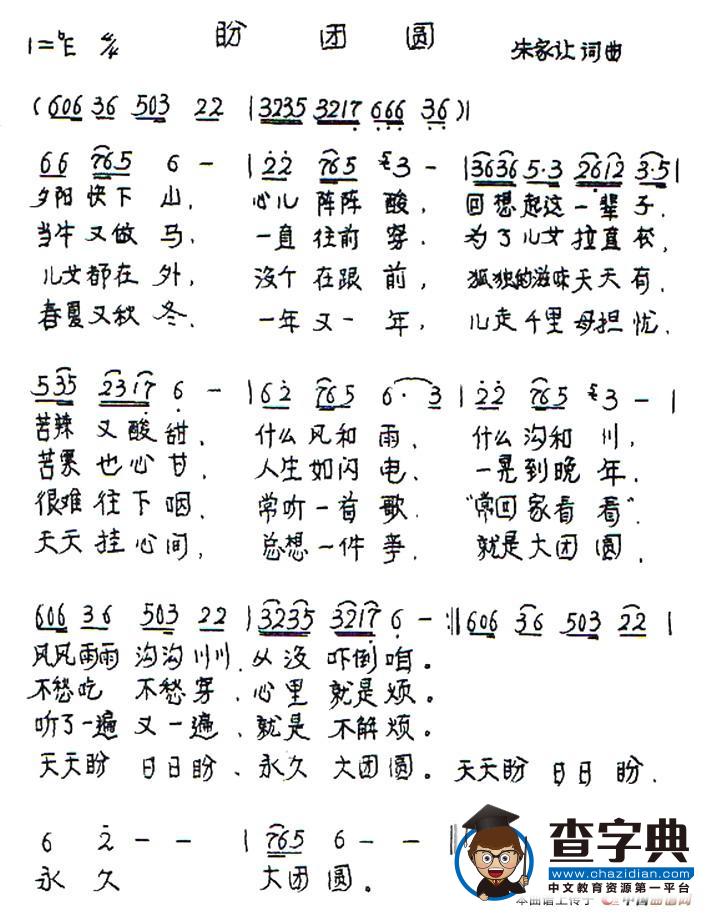 盼团圆
1=ᵇE 4/4 朱家让 词曲
(606 36 503 22 | 3235 3217 666 36) |
66 765 6 - | 22 765 3 - | 3636 5·3 2612 3·5 |
夕阳快下山，心儿阵阵酸，回想起这一辈子，
当牛又做马，一直往前穿，为了儿女拉直衣，
儿女都在外，没个在跟前，孤独的滋味天天有，
春夏又秋冬，一年又一年，儿走千里母担忧，
535 2317 6 - | 62 765 6· 3 | 22 765 3 - |
苦辣又酸甜，什么风和雨，什么沟和川，
苦累也心甘，人生如闪电，一晃到晚年，
很难往下咽，常听一首歌，"常回家看看"，
天天挂心间，总想一件事，就是大团圆，
606 36 503 22 | 3235 3217 6 - :|| 606 36 503 22 |
风风雨雨沟沟川川，从没吓倒咱。
不愁吃 不愁穿，心里就是烦。
听了一遍又一遍，就是不解烦。
天天盼 日日盼，永久大团圆。天天盼 日日盼，
6 2 - - | 765 6 - - ||
永久 大团圆。
查字典
www.chazidian.com
中文教育资源第一平台
本曲谱上传于 中国曲谱网